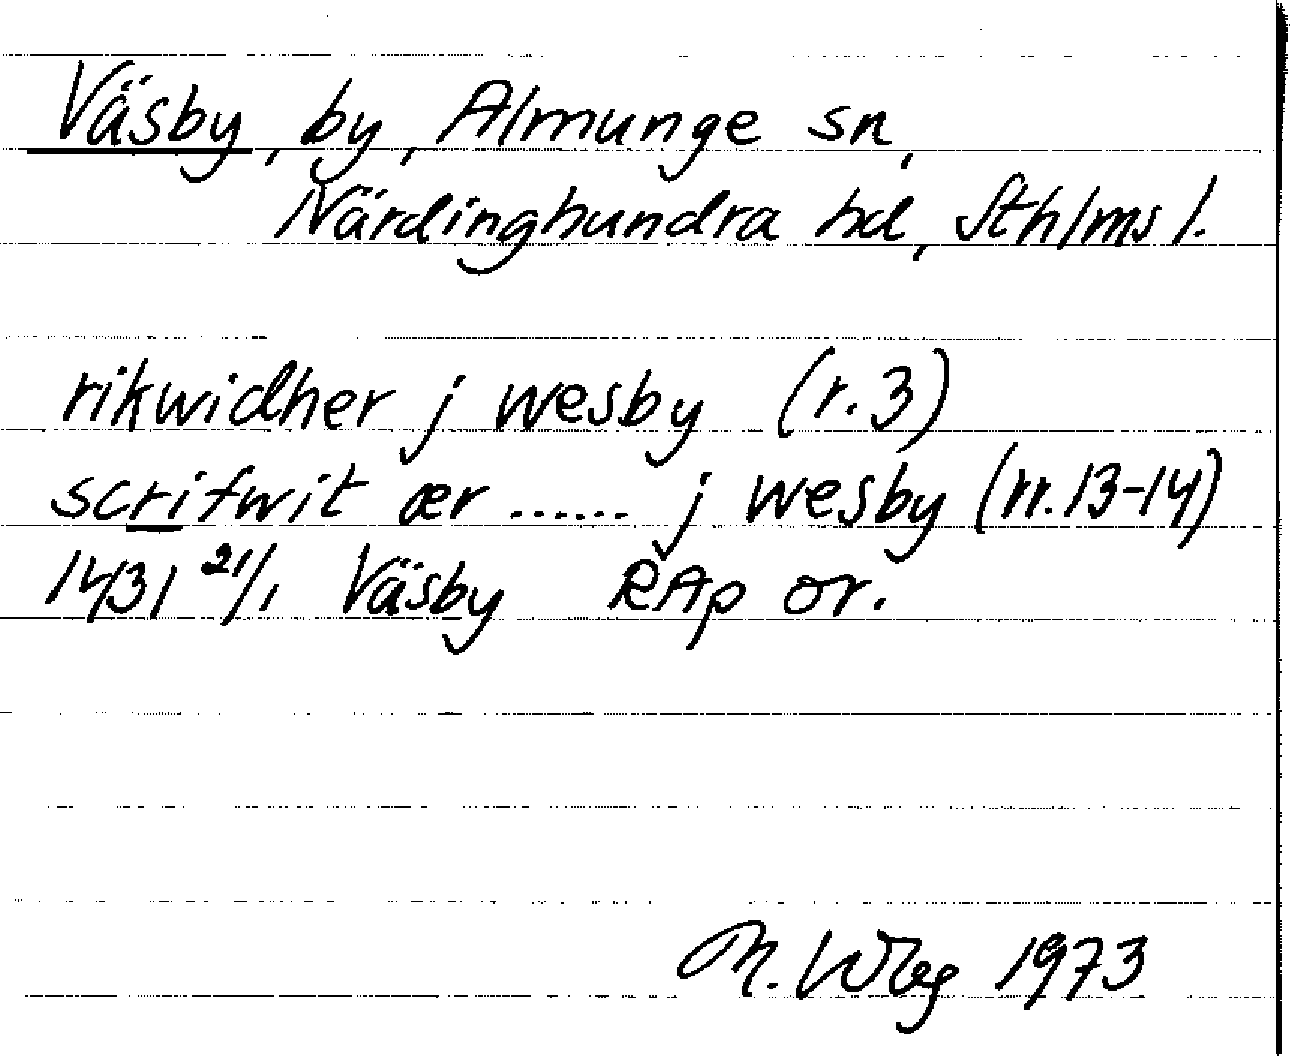 Väsby, by, Almunge sn,
Närdinghundra hd, Sthlms l.
rikwidher j wesby (r. 3)
scrifwit ær ...... j wesby (rr. 13-14)
1431 21/1 Väsby RAp or.
M. Wbg 1973